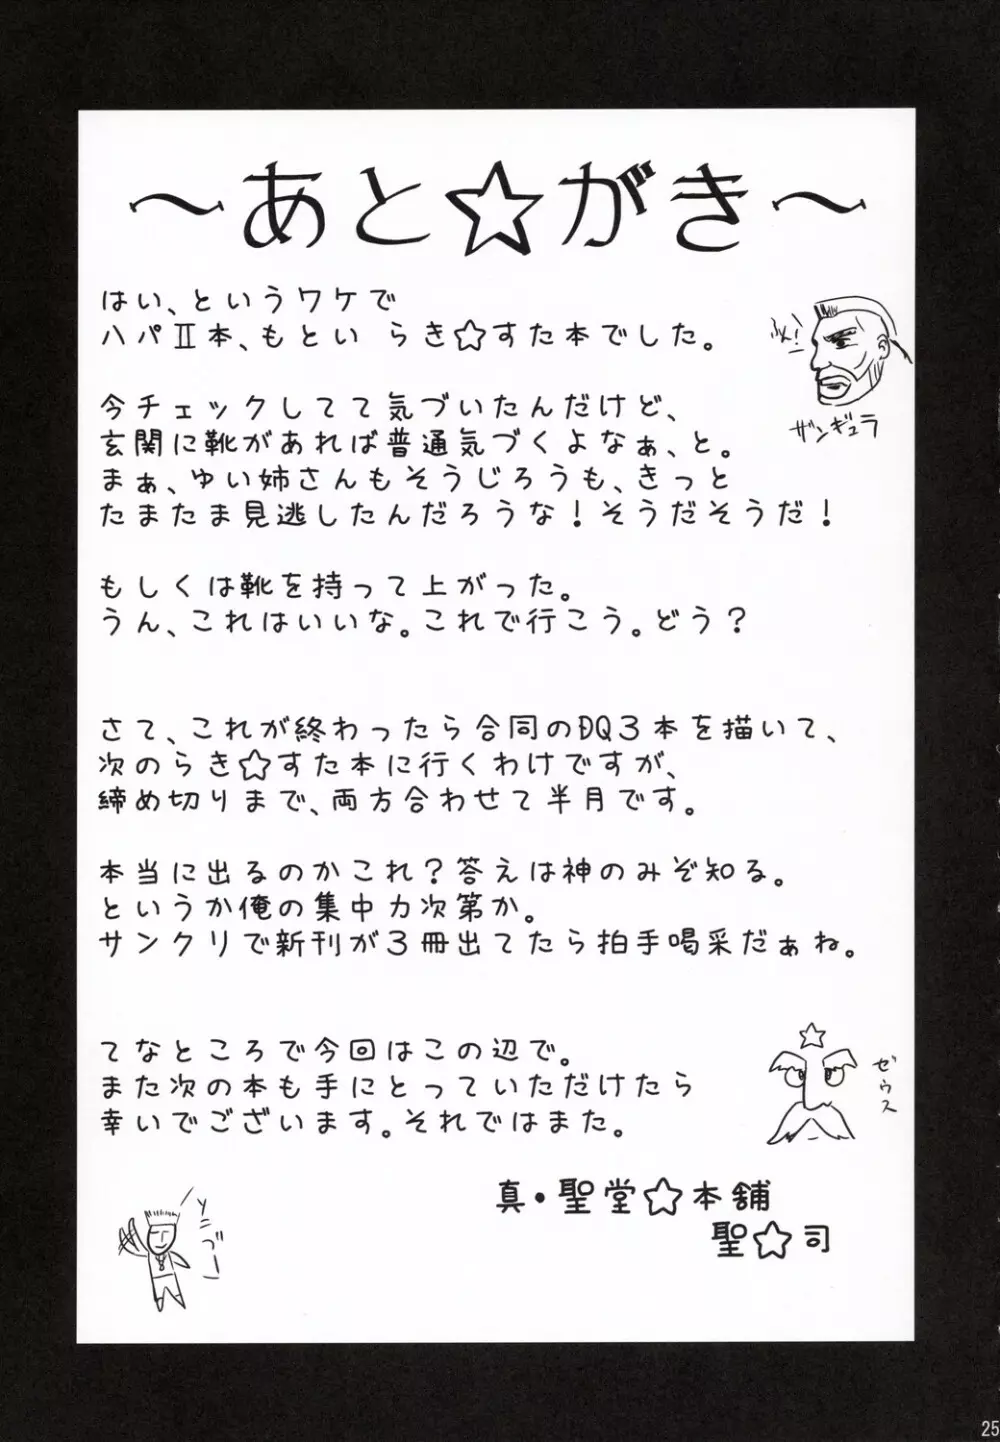 ～あと☆がき～
はい、というワケで
ハパⅡ本、もとい らき☆すた本でした。
ふん!
ザンギュラ
今チェックしてて気づいたんだけど、
玄関に靴があれば普通気づくよなぁ、と。
まぁ、ゆい姉さんもそうじろうも、きっと
たまたま見逃したんだろうな!そうだそうだ!
もしくは靴を持って上がった。
うん、これはいいな。これで行こう。どう?
さて、これが終わったら合同のDQ3本を描いて、
次のらき☆すた本に行くわけですが、
締め切りまで、両方合わせて半月です。
本当に出るのかこれ?答えは神のみぞ知る。
というか俺の集中力次第か。
サンクリで新刊が3冊出てたら拍手喝采だぁね。
てなところで今回はこの辺で。
また次の本も手にとっていただけたら
幸いでございます。それではまた。
ゼウス
真・聖堂☆本舗
聖☆司
ソニブー
25